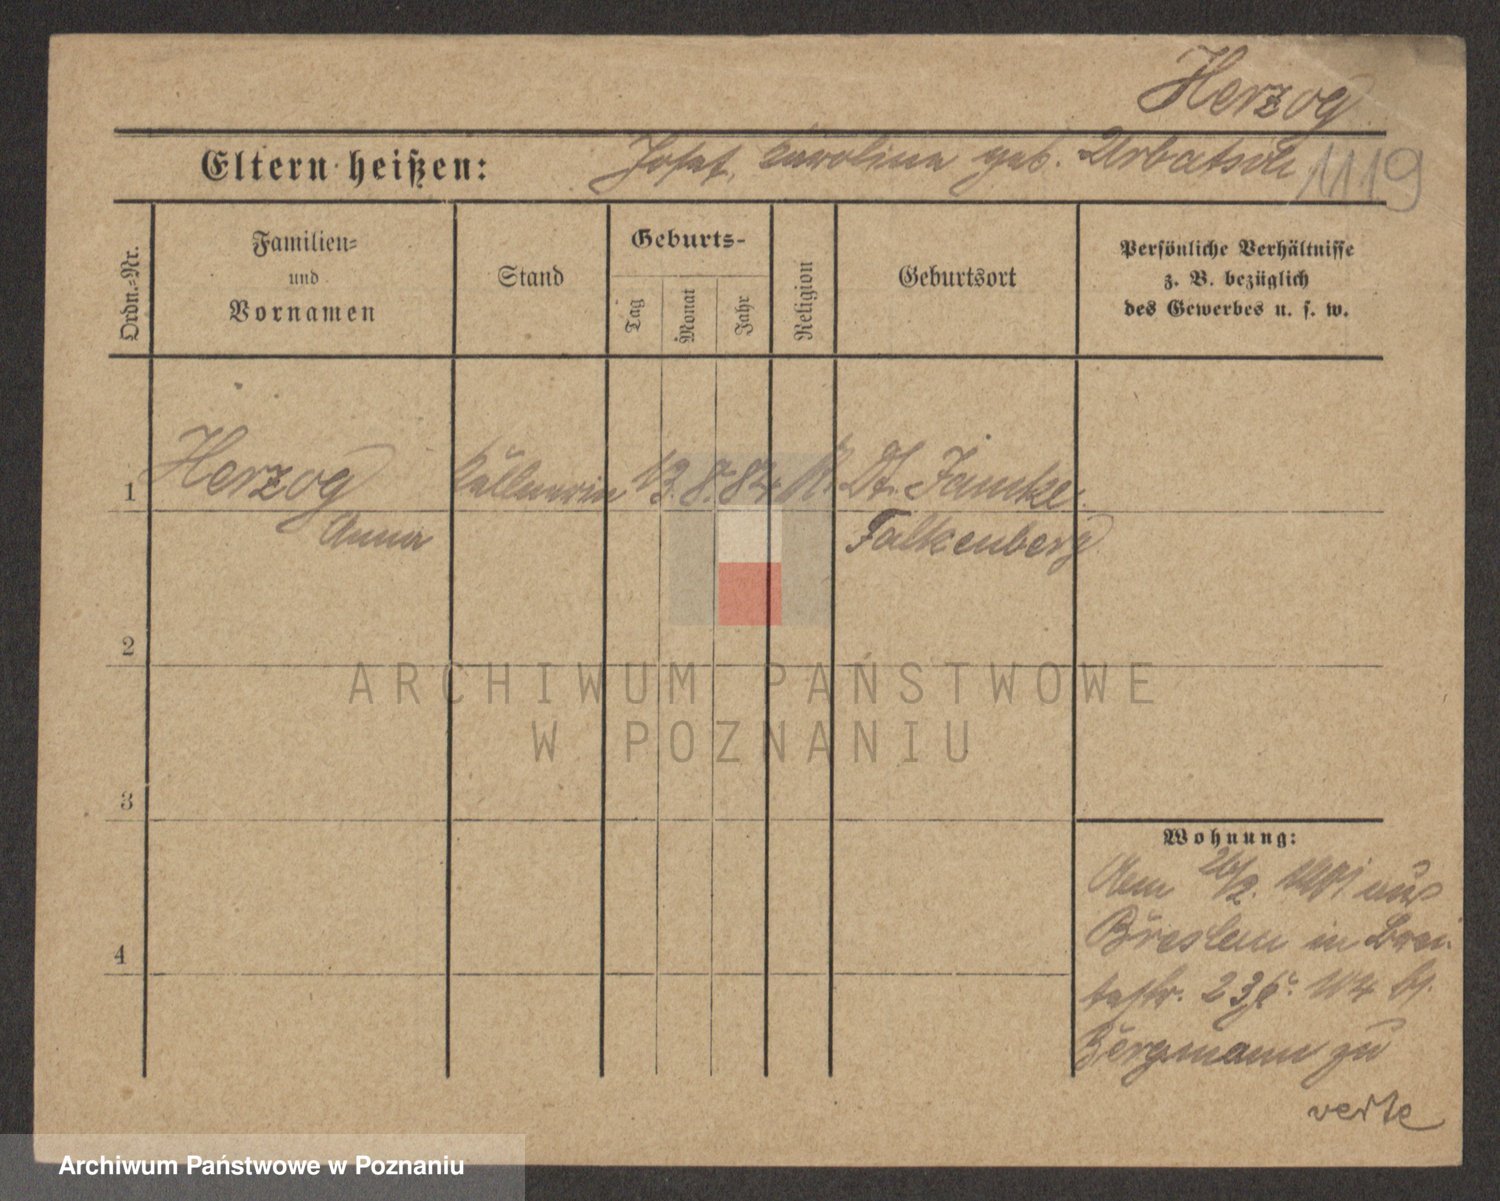 Herzog
Eltern heißen: Josef, Karolina geb. Urbatsch
1119
Ordn.-Nr.
Familien-
und
Vornamen
Stand
Geburts-
Tag
Monat
Jahr
Religion
Geburtsort
Persönliche Verhältnisse
z. B. bezüglich
des Gewerbes u. s. w.
1 Herzog Kellnerin 13. 8. 84 K. Dt. Jamke
Anna Falkenberg
2
ARCHIWUM PAŃSTWOWE
W POZNANIU
3
4
Wohnung:
Am 26/2. 1901 aus
Breslau in Brei-
testr. 23 b.
Bergmann zu
verte
Archiwum Państwowe w Poznaniu